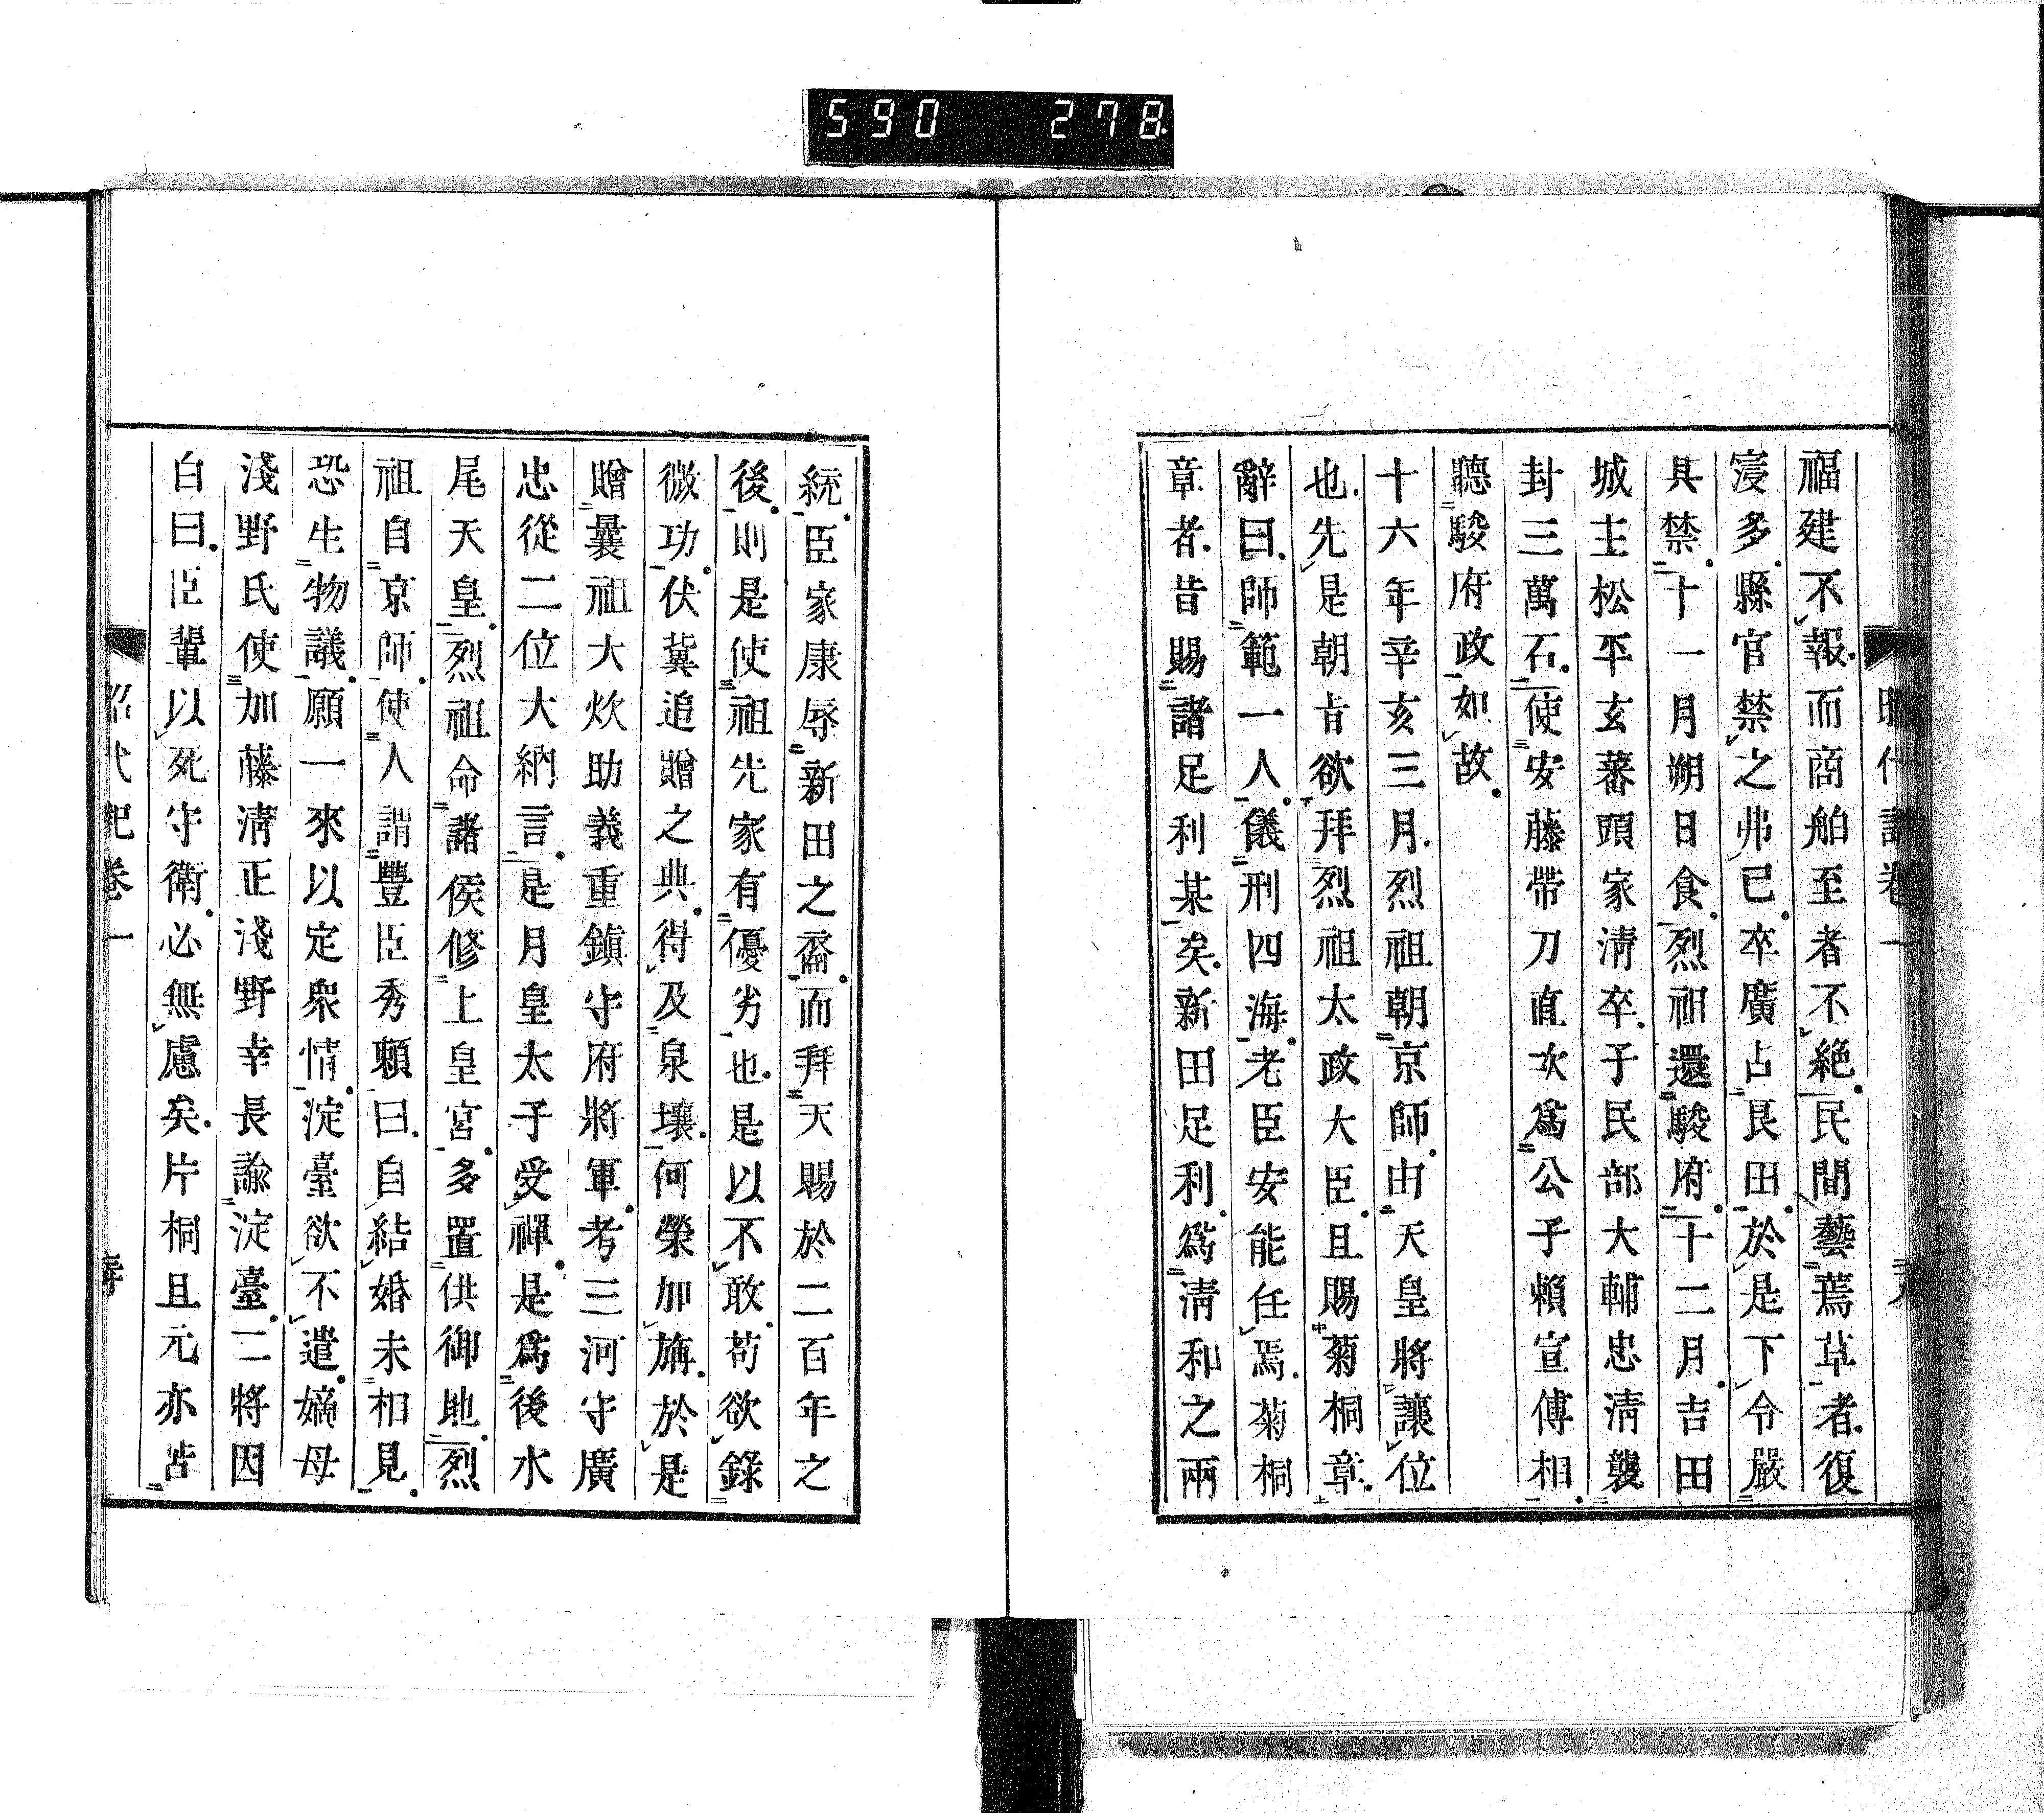 590 278
昭代記卷一
福建不報而商舶至者不絶民間藝蔫草者復
寖多縣官禁之弗已卒廣占良田於是下令嚴
其禁十一月朔日食烈祖還駿府十二月吉田
城主松平玄蕃頭家淸卒子民部大輔忠淸襲
封三萬石使安藤帶刀直次爲公子賴宣傅相
聽駿府政如故
十六年辛亥三月烈祖朝京師由天皇將讓位
也先是朝旨欲拜烈祖太政大臣且賜菊桐章
辭曰師範一人儀刑四海老臣安能任焉菊桐
章者昔賜諸足利某矣新田足利爲淸和之兩
統臣家康辱新田之裔而拜天賜於二百年之
後則是使祖先家有優劣也是以不敢苟欲錄
微功伏冀追贈之典得及泉壤何榮加旃於是
贈曩祖大炊助義重鎭守府將軍考三河守廣
忠從二位大納言是月皇太子受禪是爲後水
尾天皇烈祖命諸侯修上皇宮多置供御地烈
祖自京師使人謂豐臣秀賴曰自結婚未相見
恐生物議願一來以定衆情淀臺欲不遣嫡母
淺野氏使加藤淸正淺野幸長諭淀臺二將因
白曰臣輩以死守衛必無慮矣片桐且元亦苦
昭代記卷一